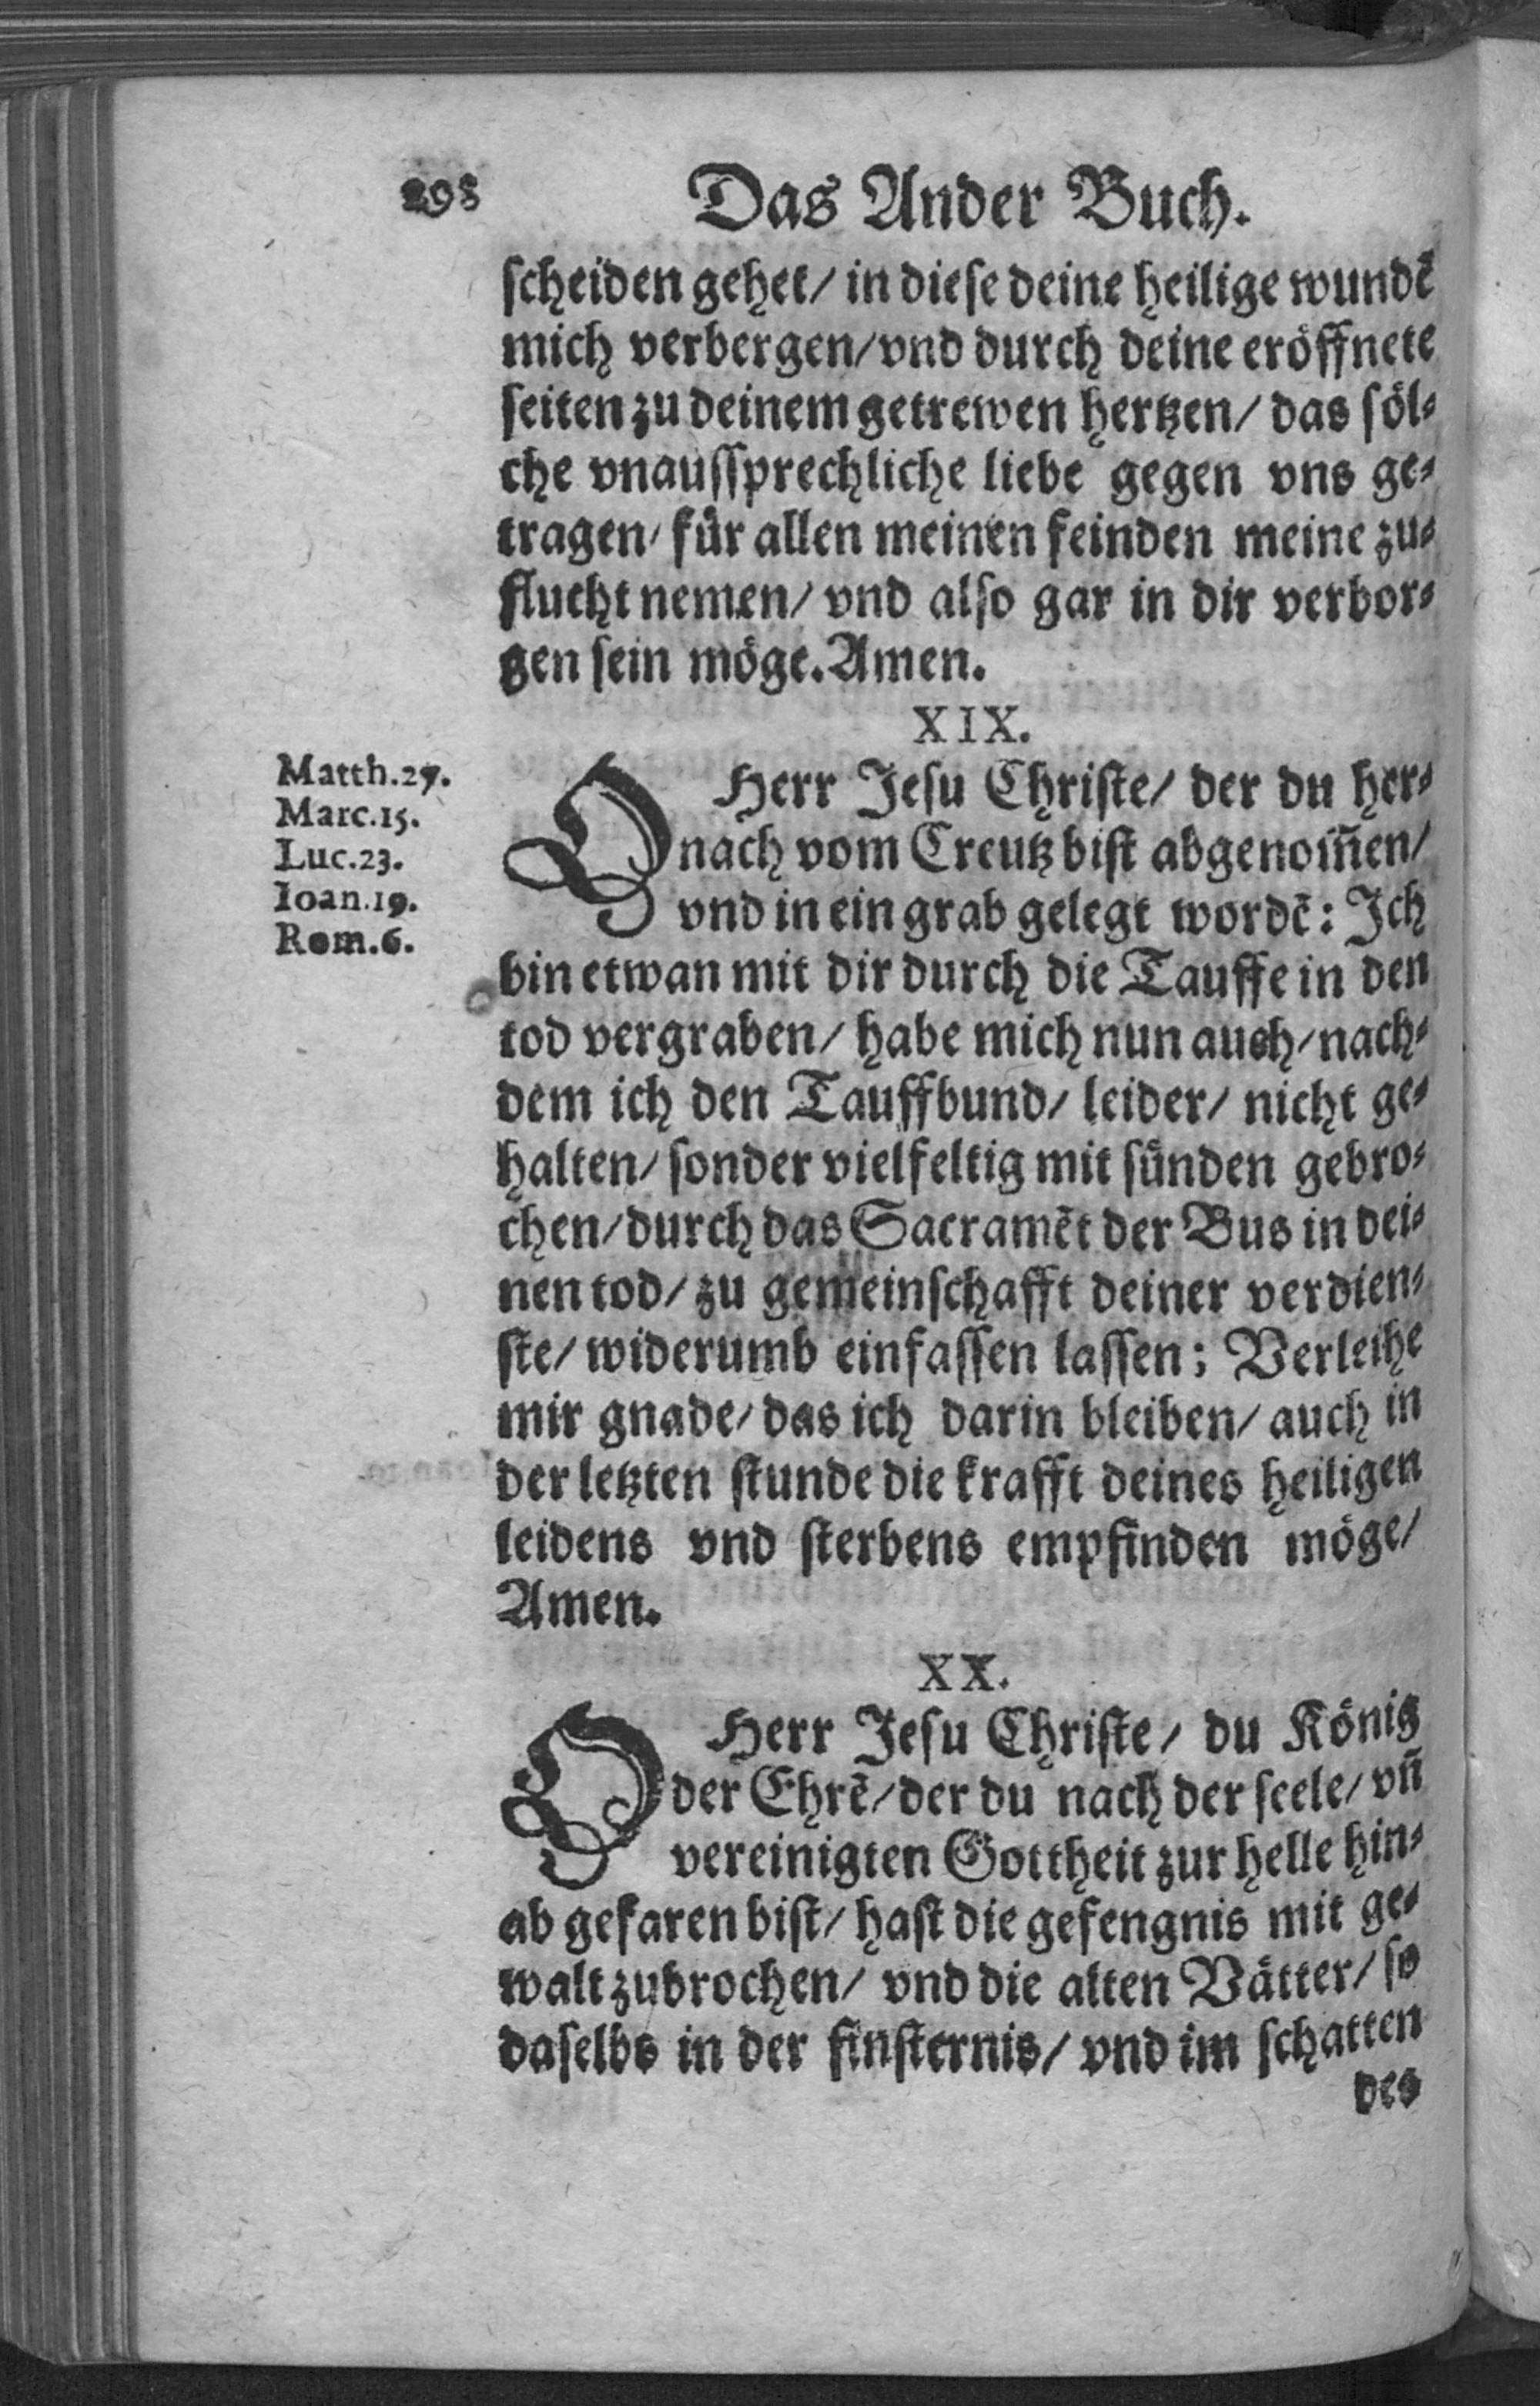 298 Das Ander Buch.
scheiden gehet/ in diese deine heilige wundẽ
mich verbergen/vnd durch deine eröffnete
seiten zu deinem getrewen hertzen/ das söl⸗
che vnaussprechliche liebe gegen vns ge⸗
tragen/ für allen meinen feinden meine zu⸗
flucht nemen/ vnd also gar in dir verbor⸗
gen sein möge. Amen.
XIX.
Matth.27.
Marc.15.
Luc.23.
Ioan.19.
Rom.6.
O Herr Jesu Christe/ der du her⸗
nach vom Creutz bist abgenom̃en/
vnd in ein grab gelegt wordẽ: Ich
bin etwan mit dir durch die Tauffe in den
tod vergraben/ habe mich nun auch/nach⸗
dem ich den Tauffbund/ leider/ nicht ge⸗
halten/ sonder vielfeltig mit sünden gebro⸗
chen/durch das Sacramẽt der Bus in dei⸗
nen tod/ zu gemeinschafft deiner verdien⸗
ste/ widerumb einfassen lassen; Verleihe
mir gnade/ das ich darin bleiben/ auch in
der letzten stunde die krafft deines heiligen
leidens vnd sterbens empfinden möge/
Amen.
XX.
O Herr Jesu Christe/ du König
der Ehrẽ/der du nach der seele/ vñ
vereinigten Gottheit zur helle hin⸗
ab gefaren bist/ hast die gefengnis mit ge⸗
walt zubrochen/ vnd die alten Vätter/ so
daselbs in der finsternis/ vnd im schatten
des